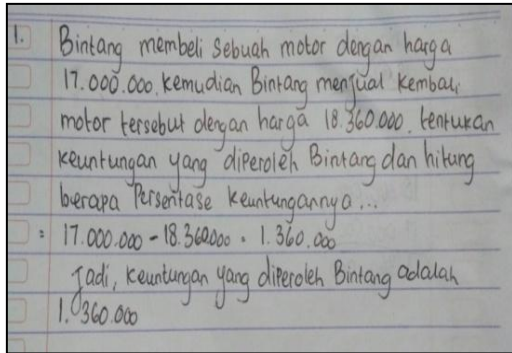 1. Bintang membeli sebuah motor dengan harga
17.000.000. Kemudian Bintang menjual kembali
motor tersebut dengan harga 18.360.000. tentukan
keuntungan yang diperoleh Bintang dan hitung
berapa Persentase keuntungannya...
= 17.000.000 - 18.360.000 = 1.360.000
Jadi, keuntungan yang diperoleh Bintang adalah
1.360.000